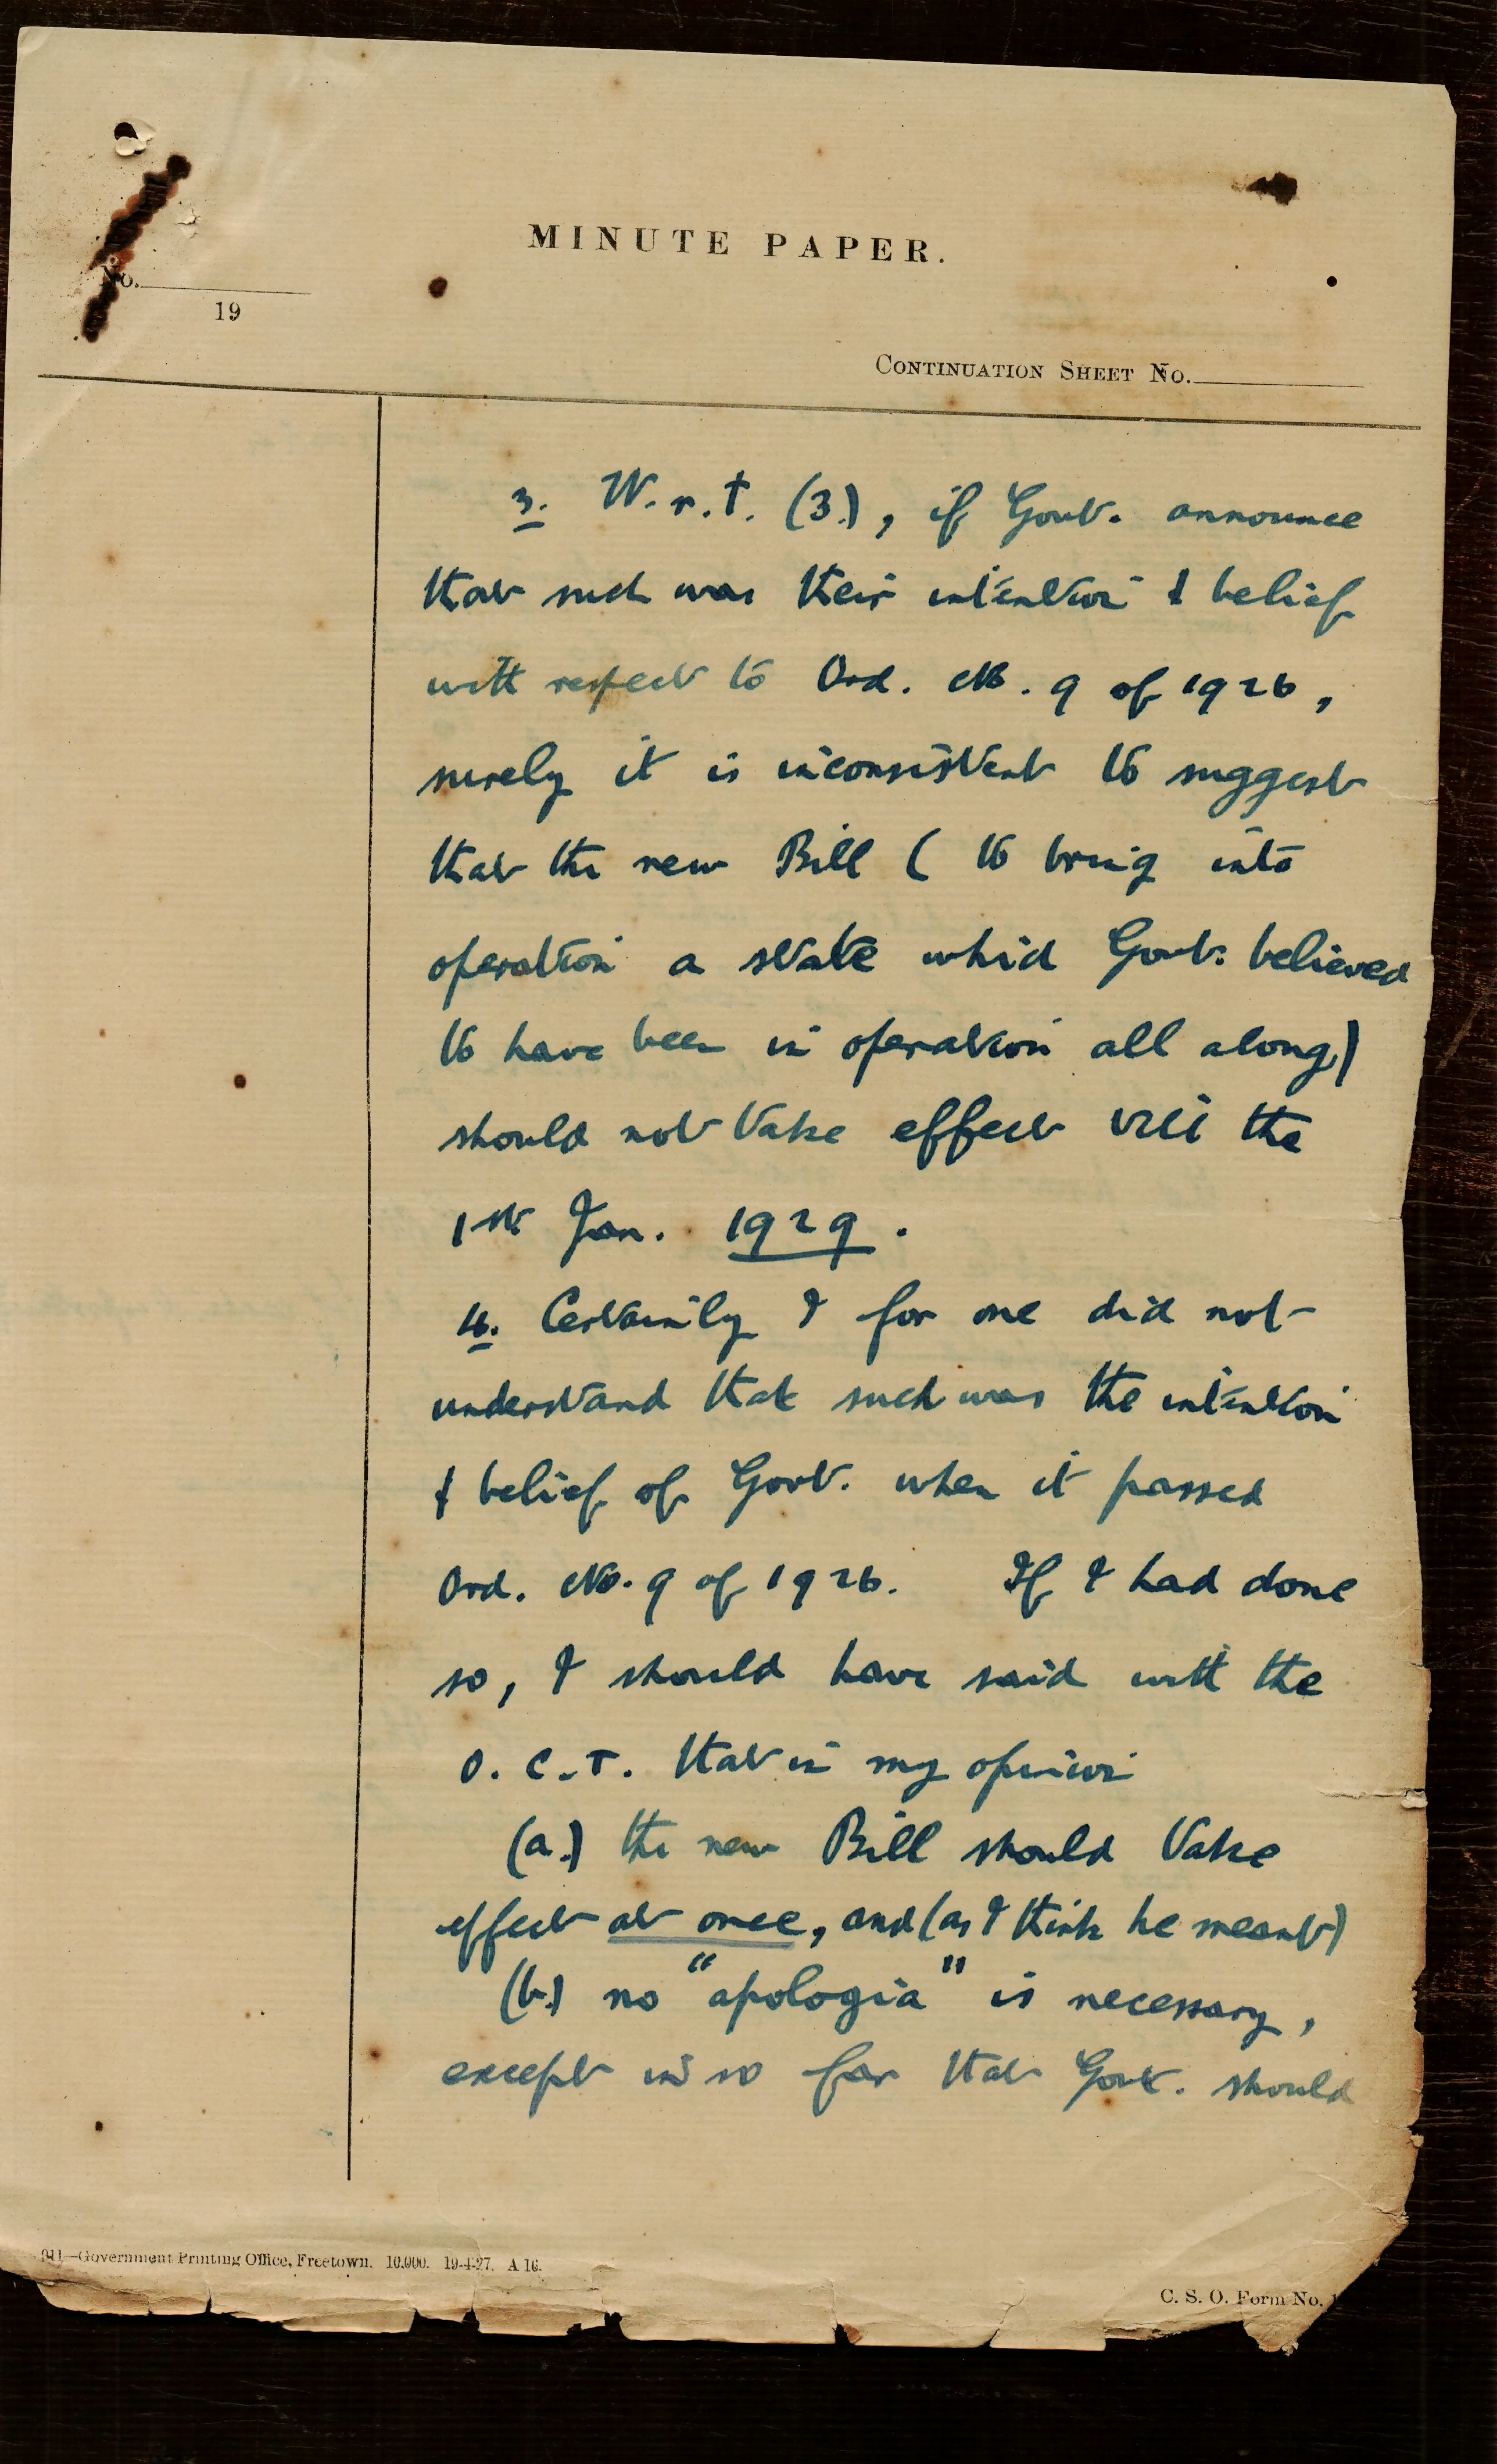 MINUTE PAPER.
No.
19
CONTINUATION SHEET NO.
3. W.r.t. (3.), if Govt. announce
that such was their intention & belief
with respect to Ord. No. 9 of 1926,
surely it is inconsistent to suggest
that the new Bill (to bring into
operation a state which Govt. believed
to have been in operation all along)
should not take effect till the
1st Jan. 1929.
4. Certainly I for one did not
understand that such was the intention
& belief of Govt. when it passed
Ord. No. 9 of 1926. If I had done
so, I should have said with the
O.C.T. that in my opinion
(a.) the new Bill should take
effect at once, and (as I think he meant)
(b.) no "apologia" is necessary,
except in so far that Govt. should
—Government Printing Office, Freetown. 10,000. 19-4-27. A 16.
C. S. O. Form No.